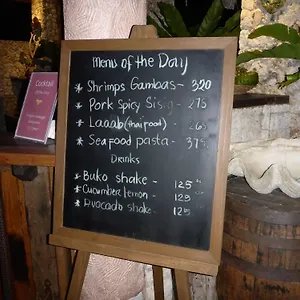 Cocktail
Menu of the Day
* Shrimps Gambas - 320
* Pork Spicy Sisig - 275
* Laaab (thai food) - 265
* Seafood pasta - 375
Drinks
* Buko shake - 125
* Cucumber lemon - 125
* Avocado shake - 125